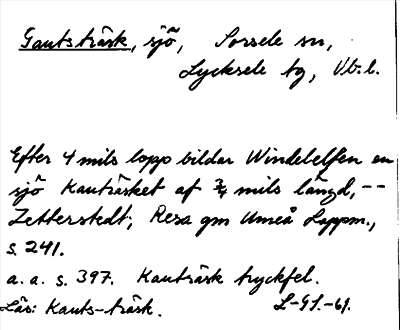 Gautsträsk, sjö, Sorsele sn,
Lycksele tg, Vb.l.
Efter 4 mils lopp bildar Windelelfven en
sjö Kauträsket af ¾ mils längd, --
Zetterstedt, Resa gm Umeå Lappm.,
s. 241.
a. a. s. 397. Kauträsk tryckfel.
Läs: Kauts-träsk. L-Gf.-61.